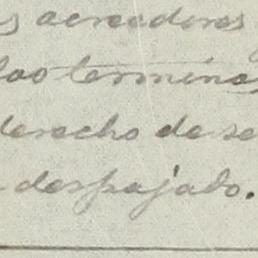 s acreedores
los terminos
derecho de se
despojado.